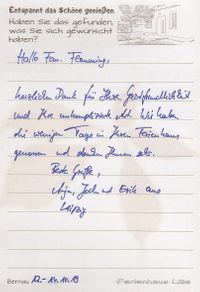 Entspannt das Schöne genießen
Haben Sie das gefunden,
was Sie sich gewünscht
haben?
Hallo Fam. Flemming,
herzlichen Dank für Ihre Gastfreundlichkeit
und Ihre unkomplizierte Art. Wir haben
die wenigen Tage in Ihrem Ferienhaus
genossen und danken Ihnen sehr.
Beste Grüße,
und Erik aus
Leipzig
Bernau 12.-14.10.19
Ferienhaus Lilie